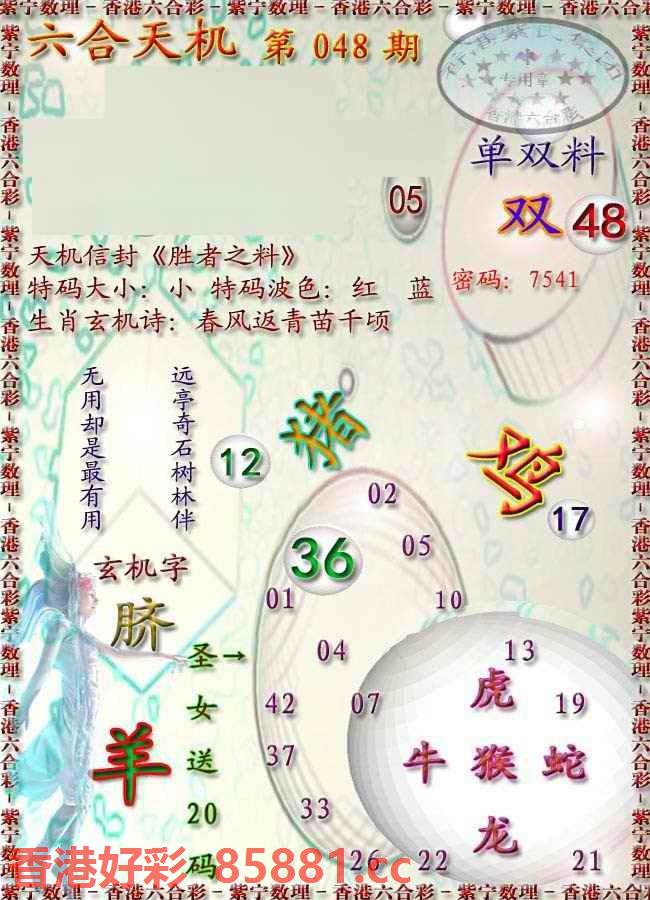 紫宁数理－香港六合彩－紫宁数理－香港六合彩－紫宁数理－香港六合彩
六合天机 第 048 期
专用章
香港六合彩
单双料
双 48
05
天机信封《胜者之料》
特码大小：小 特码波色：红 蓝
密码：7541
生肖玄机诗：春风返青苗千顷
远亭奇石树林伴
无用却是最有用
12
猪
鸡
17
36
02
05
玄机字
脐
01
10
圣→
女
送
20
码
04
13
虎
42
07
19
羊
37
牛 猴 蛇
33
龙
26
22
21
香港好彩 85881.cc
紫宁数理－香港六合彩－紫宁数理－香港六合彩－紫宁数理－香港六合彩